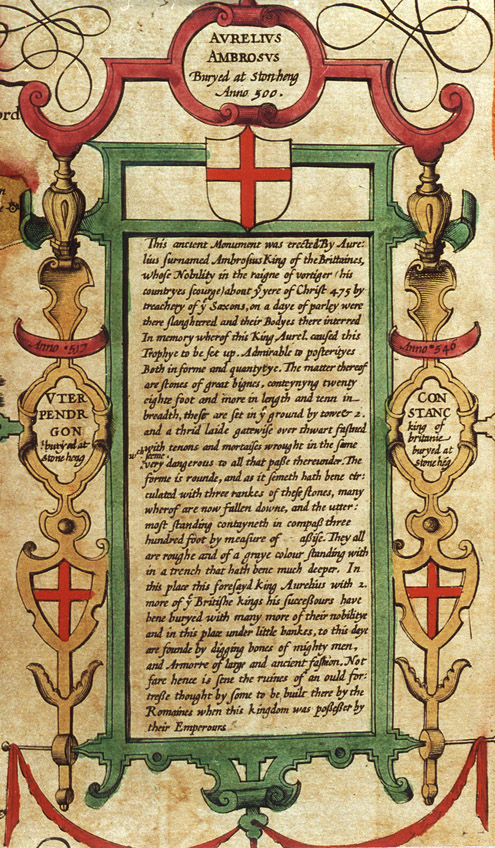 AVRELIVS
AMBROSVS
Buryed at Stonheng
Anno 500.
This ancient Monument was erected By Aure:
lius surnamed Ambrosius King of the Brittaines,
whose Nobility in the raigne of vortiger (his
countryes scourge) about yͤ yere of Christ 475 by
treachery of yͤ Saxons, on a daye of parley were
there slaughtered and their Bodyes there interred
In memory wherof this King Aurel. caused this
Trophye to be set up. Admirable to posterityes
Both in forme and quantytye. The matter therof
are stones of great bignes, conteynyng twenty
eighte foot and more in length and tenn in
breadth, these are set in yͤ ground by towe 2.
and a thrid laide gatewise over thwart fastned
with tenons and mortaises wrought in the same
wᶜʰ seeme
very dangerous to all that passe therounder. The
forme is rounde, and as it semeth hath bene cir
culated with three rankes of these stones, many
wherof are now fallen downe, and the utter:
most standing contayneth in compass three
hundred foot by measure of assise. They all
are roughe and of a graye colour standing with
in a trench that hath bene much deeper. In
this place this foresayd King Aurelius with 2.
more of yͤ Brittishe kings his successours have
bene buryed with many more of their nobilitye
and in this place under little bankes, to this daye
are founde by digging bones of mighty men,
and Armorre of large and ancient fashion. Not
farr hence is sene the ruines of an ould for:
tresse thought by some to be built there by the
Romaines when this kingdom was possesser by
their Emperours
Anno 517
VTER
PENDR
GON
buryed at
Stoneheng
Anno 546
CON
STANC
king of
britanie
buryed at
Stoneheg